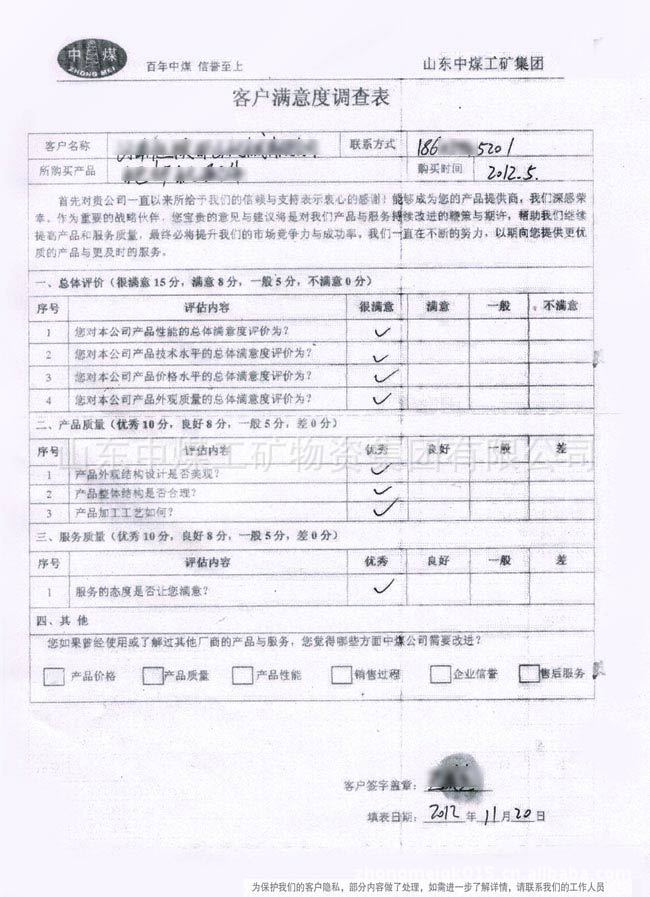 中 煤
ZHONG MEI
百年中煤 信誉至上
山东中煤工矿集团
客户满意度调查表
客户名称 联系方式 186 5201
所购买产品 购买时间 2012.5.
首先对贵公司一直以来所给予我们的信赖与支持表示衷心的感谢！能够成为您的产品提供商，我们深感荣
幸。作为重要的战略伙伴，您宝贵的意见与建议将是对我们产品与服务持续改进的鞭策与期许，帮助我们继续
提高产品和服务质量，最终必将提升我们的市场竞争力与成功率。我们一直在不断的努力，以期向您提供更优
质的产品与更及时的服务。
一、总体评价（很满意 15 分，满意 8 分，一般 5 分，不满意 0 分）
序号 评估内容 很满意 满意 一般 不满意
1 您对本公司产品性能的总体满意度评价为？ ✓
2 您对本公司产品技术水平的总体满意度评价为？ ✓
3 您对本公司产品价格水平的总体满意度评价为？ ✓
4 您对本公司产品外观质量的总体满意度评价为？ ✓
二、产品质量（优秀 10 分，良好 8 分，一般 5 分，差 0 分）
序号 评估内容 优秀 良好 一般 差
山东中煤工矿物资集团有限公司
1 产品外观结构设计是否美观？ ✓
2 产品整体结构是否合理？ ✓
3 产品加工工艺如何？ ✓
三、服务质量（优秀 10 分，良好 8 分，一般 5 分，差 0 分）
序号 评估内容 优秀 良好 一般 差
1 服务的态度是否让您满意？ ✓
四、其 他
您如果曾经使用或了解过其他厂商的产品与服务，您觉得哪些方面中煤公司需要改进？
产品价格 产品质量 产品性能 销售过程 企业信誉 售后服务
客户签字盖章：
填表日期： 2012 年 11 月 20 日
为保护我们的客户隐私，部分内容做了处理，如需进一步了解详情，请联系我们的工作人员